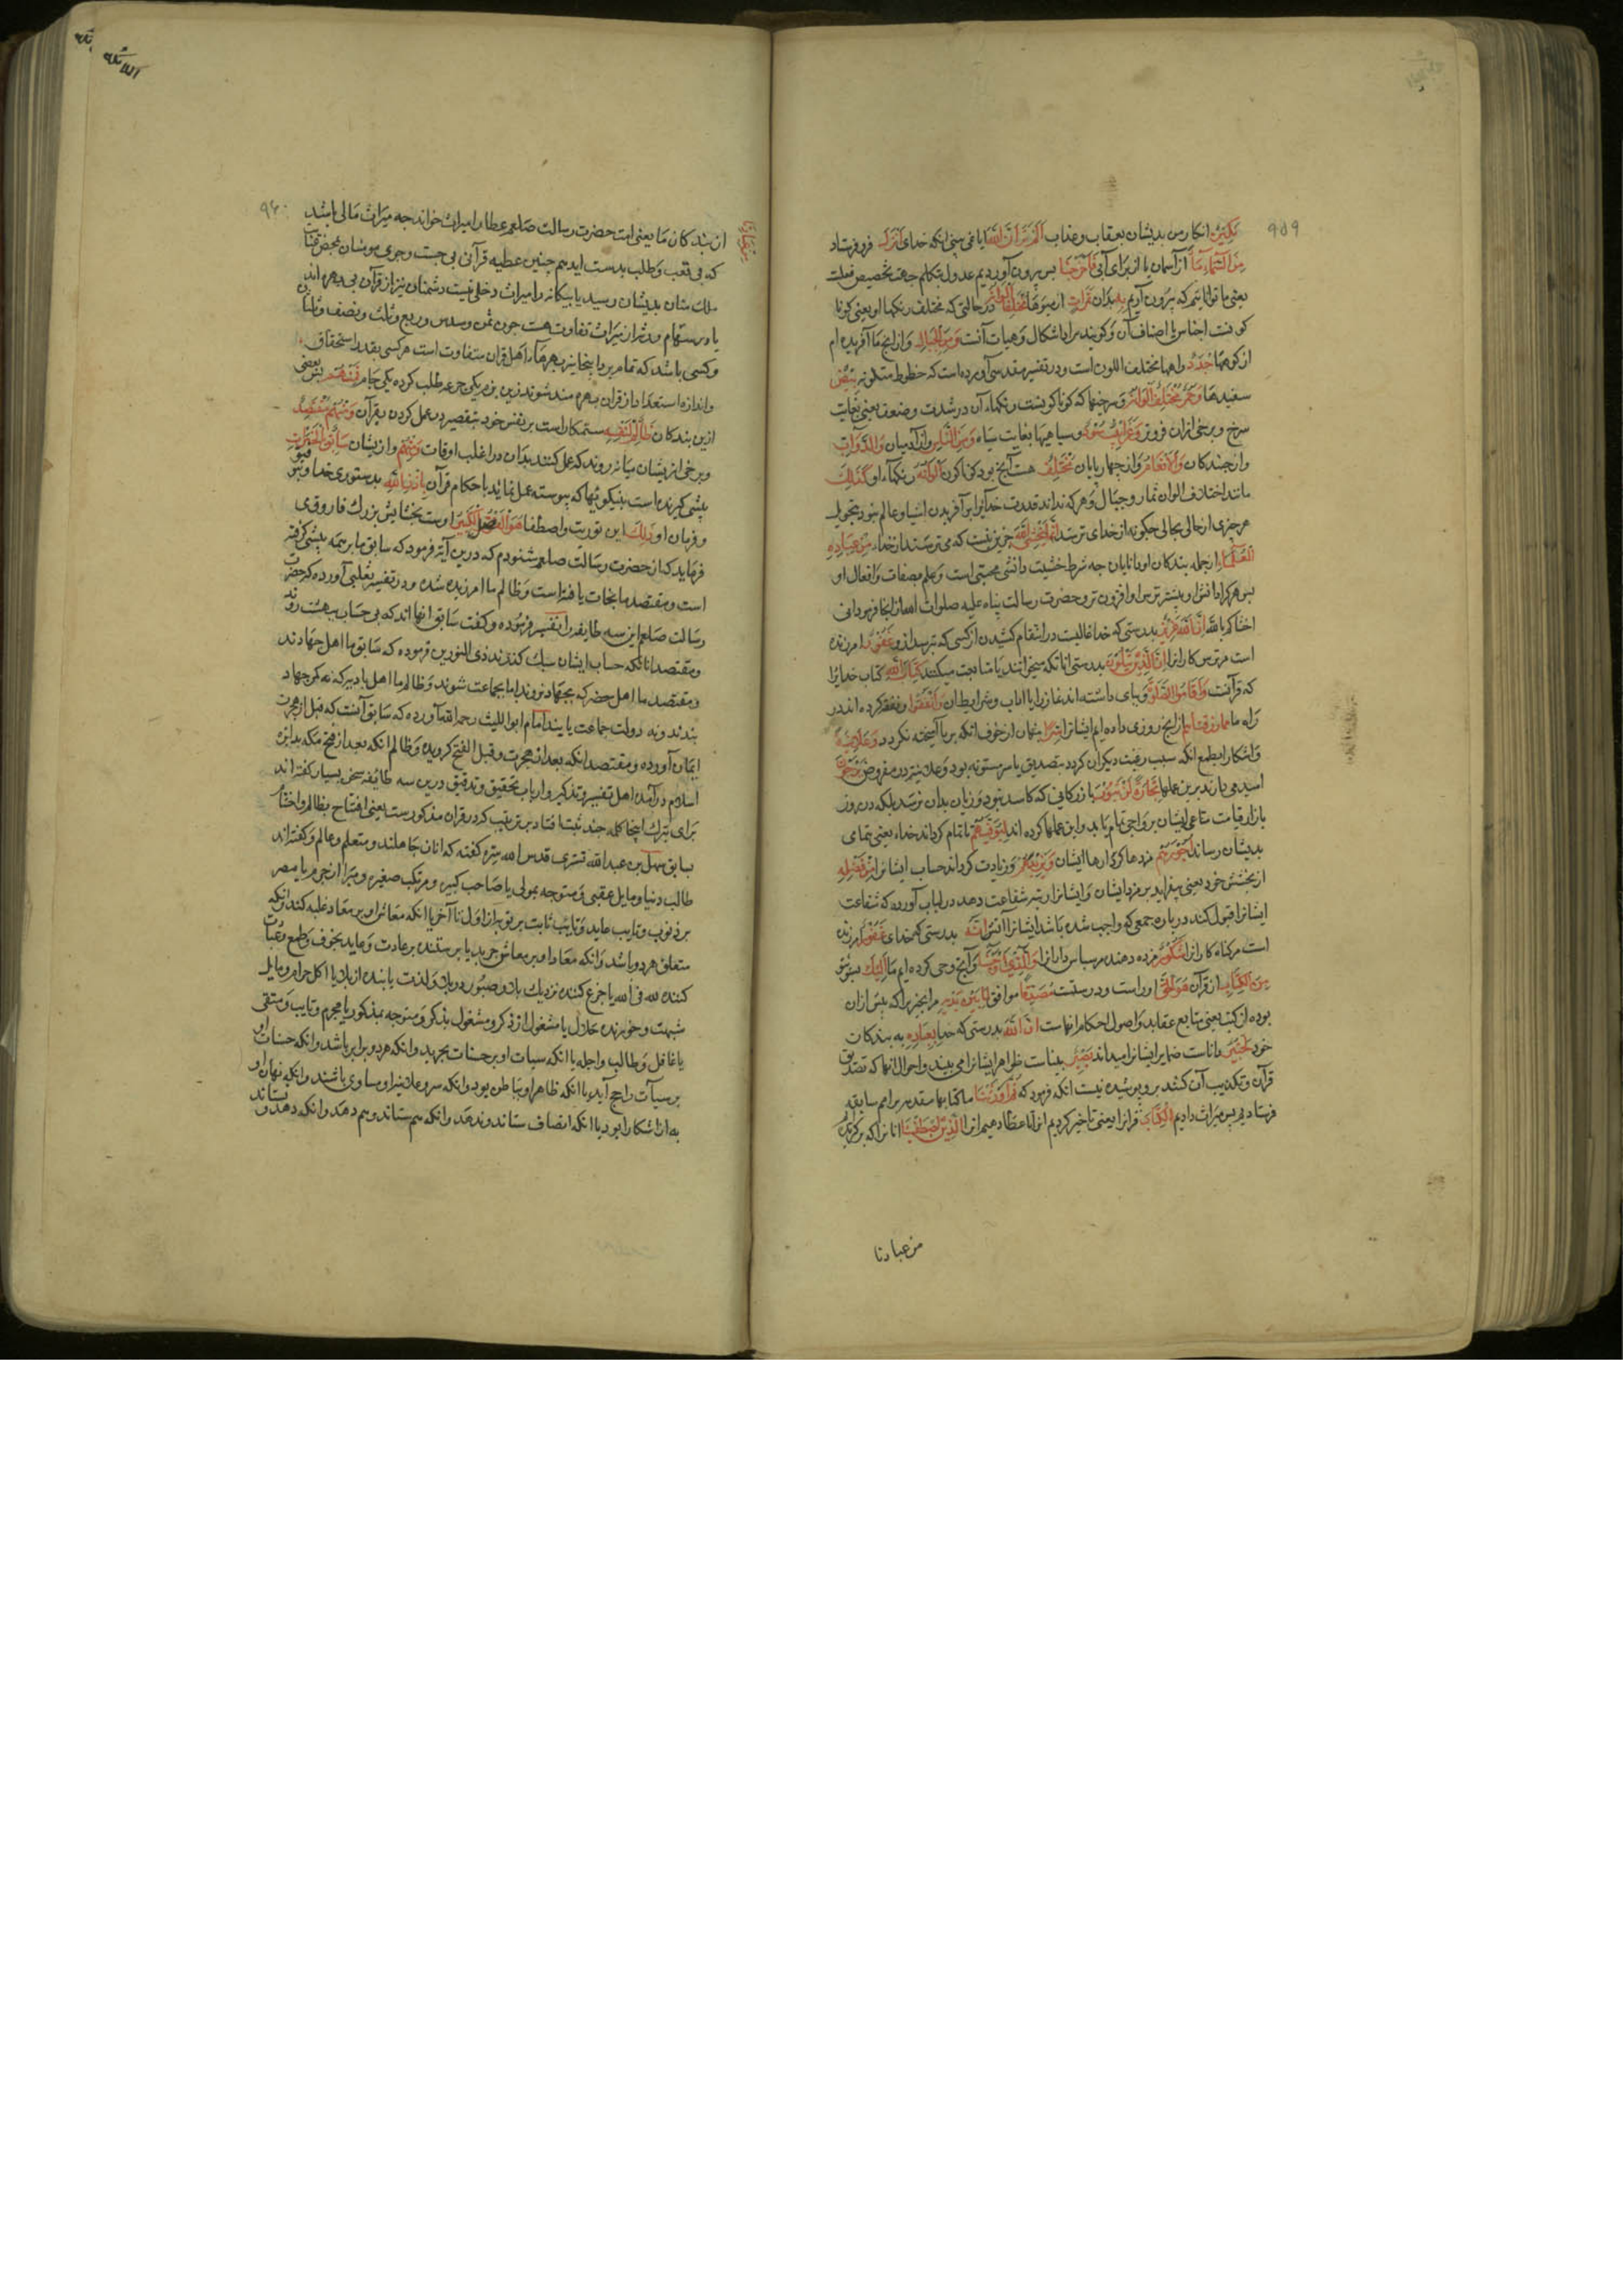 ۹۵۹
نَكِيرِ انکار من بدیشان بعقاب و عذاب اَلَمْ تَرَ اَنَّ اللّٰهَ ایا نمی بینی انکه خدای اَنْزَلَ فرو فرستاد
مِنَ السَّمَاءِ مَاءً از آسمان یا از ابر آبی فَاَخْرَجْنَا پس بیرون آوردیم عدول بتکلم جهة تخصیص فعلست
یعنی ما توانائیم که بیرون آریم بِهِ بدان ثَمَرَاتٍ از میوها مُخْتَلِفًا اَلْوَانُهَا در حالتی که مختلفست رنکهاء او یعنی کونا
کونست اجناس یا اصناف آن و کویند مراد اشکال و هیات آنست وَمِنَ الْجِبَالِ و از انچ ما آفریده ام
از کوهها جُدَدٌ راهها مختلف اللون است و در تفسیر مقدسی آورده است که خطوط متلونه بِيضٌ
سفید ها وَحُمْرٌ مُخْتَلِفٌ اَلْوَانُهَا و سرخیها که کوناکونست رنکهاء آن در شدت و ضعف یعنی بغایت
سرخ و برخی ازان فروتر وَغَرَابِيبُ سُودٌ و سیاهیها بغایت سیاه وَمِنَ النَّاسِ و از آدمیان وَالدَّوَابِّ
و از جنبندکان وَالْاَنْعَامِ و از چهار پایان مُخْتَلِفٌ هست آنچ بود کوناکون اَلْوَانُهُ رنکهاء او كَذٰلِكَ
مانند اختلاف الوان ثمار و جبال و هر که نداند قدرت خدایرا بر آفریدن اشیا و عالم نبود بتحویل
هر چیزی از حالی بحالی چکونه از خدای ترسد اِنَّمَا يَخْشَى اللّٰهَ جز این نیست که می ترسند از خداء مِنْ عِبَادِهِ
الْعُلَمَاءُ از جمله بندکان او دانایان چه شرط خشیت دانش مخشی است و علم بصفات و افعال او
پس هر کرا دانش او بیشتر ترس او افزون تر و حضرت رسالت پناه علیه صلوات الله ازانجا فرمود انی
اخشاکم بالله اِنَّ اللّٰهَ عَزِيزٌ بدرستی که خدا غالبست در انتقام کشیدن از کسی که نترسد ازو غَفُورٌ امرزنده
است مر ترس کارانرا اِنَّ الَّذِينَ يَتْلُونَ بدرستی انانکه میخوانند یا متابعت میکنند كِتَابَ اللّٰهِ کتاب خدایرا
که قرآنست وَاَقَامُوا الصَّلٰوةَ و بپای داشته اند نماز را با اداب و شرایط ان وَاَنْفَقُوا و نفقه کرده اند در
راه ما مِمَّا رَزَقْنَاهُمْ از انچ روزی داده ایم ایشانرا سِرًّا پنهان از خوف انکه بریا آمیخته نکردد وَعَلَانِيَةً
و اشکارا بطمع انکه سبب رغبت دیکران کردد بتصدیق یا سر مسنونه بود و علانیه در مفروض يَرْجُونَ
امید می دارند برین عملها تِجَارَةً لَنْ تَبُورَ بازرکانی که کاسد نبود و زیان بدان نرسد بلکه در روز
بازار قیامت متاعی ایشان برواجی تمام باید و این عملها کرده اند لِيُوَفِّيَهُمْ تا تمام کرداند خداء یعنی بتمامی
بدیشان رساند اُجُورَهُمْ مزدهاء کردارها ایشان وَيَزِيدَهُمْ و زیادت کرداند حساب ایشانرا مِنْ فَضْلِهِ
از بخشش خود یعنی بیفزاید بر مزد ایشان و ایشانرا رتبه شفاعت دهد در لباب آورده که شفاعت
ایشانرا قبول کند درباره جمعی که واجب شده باشد ایشانرا آتش اِنَّهُ بدرستی که خدای غَفُورٌ امرزنده
است مر کناه کارانرا شَكُورٌ مزده دهنده مر سپاس دارانرا وَالَّذِي اَوْحَيْنَا و آنچ وحی کرده ایم ما اِلَيْكَ بسوی تو
مِنَ الْكِتَابِ از قرآن هُوَ الْحَقُّ او راست و درستست مُصَدِّقًا موافق لِمَا بَيْنَ يَدَيْهِ مر انچیز را که پیش ازان
بوده از کتب یعنی متابع عقاید و اصول احکام انهاست اِنَّ اللّٰهَ بدرستی که خدا بِعِبَادِهِ به بندکان
خود لَخَبِيرٌ داناست ضمایر ایشانرا میداند بَصِيرٌ بیناست ظواهر ایشانرا می بیند و احوال انها که تصدیق
قرآن و تکذیب آن کنند برو پوشیده نیست انکه فرمود که ثُمَّ اَوْرَثْنَا ما کتابها متقدمه بر امم سابقه
فرستادیم پس میراث دادیم الْكِتَابَ قرانرا یعنی تاخیر کردیم انرا تا عطا دهیم انرا الَّذِينَ اصْطَفَيْنَا انانرا که برکزیدیم
من عبادنا
۹۶۰
از بندکان ما یعنی امت حضرت رسالت صلعم عطا را میراث خواند چه میراث مالی باشد
که بی تعب و طلب بدست اید همچنین عطیه قرآن بی جست و جوی مومنان بمحض عنایت
ملک منان بدیشان رسید یا بیکانه را میراث دخلی نیست دشمنان نیز از قرآن بی بهره اند
یا در سهام ورثه از میراث تفاوت هست چون ثمن و سدس و ربع و ثلث و نصف و ثلثان
و کسی باشد که تمام برد اینجا نیز بهرهاء اهل قران متفاوت است هر کسی بقدر استحقاق
و اندازه استعداد از قران بهره مند شوند زین بزم یکی جرعه طلب کرده یکی جام فَمِنْهُمْ پس بعضی
ازین بندکان ظَالِمٌ لِنَفْسِهِ ستمکار است بر نفس خود بتقصیر در عمل کردن بقرآن وَمِنْهُمْ مُقْتَصِدٌ
و برخی از ایشان میانه روند که عمل کنند بدان در اغلب اوقات وَمِنْهُمْ و از یشان سَابِقٌ بِالْخَيْرَاتِ
پیشی کیرنده است بنیکوئیها که پیوسته عمل نماید با حکام قرآن بِاِذْنِ اللّٰهِ بدستوری خدا و بتوفیق
و فرمان او ذٰلِكَ این توریت و اصطفا هُوَ الْفَضْلُ الْكَبِيرُ اوست بخشایش بزرک فاروق رض
فرماید که از حضرت رسالت صلعم شنودم که درین آیة فرمود که سابق ما بر همه پیشی کرفته
است و مقتصد ما نجات یافته است و ظالم ما امرزیده شده و در تفسیر ثعلبی آورده که حضرت
رسالت صلعم این سه طایفه را تفسیر فرموده و کفت سابق انها اند که بی حساب ببهشت روند
و مقتصد انانکه حساب ایشان سبک کنند ذی النورین فرموده که سابق ما اهل جهادند
و مقتصد ما اهل حضر که بجهاد نروند اما بجماعت شوند و ظالم ما اهل بادیه که نه کمر جهاد
بندند و نه دولت جماعت یابند امام ابو اللیث رحمه الله آورده که سابق آنست که قبل از هجرت
ایمان آورده و مقتصد انکه بعد از هجرت و قبل الفتح کرویده و ظالم انکه بعد از فتح مکه بدایرهٔ
اسلام درآمده اهل تفسیر و تذکیر و ارباب تحقیق و تدقیق درین سه طائفه سخن بسیار کفته اند
برای تبرک اینجا کلمه چند ثبت افتاد بر ترتیب که در قران مذکورست یعنی افتتاح بظالم و اختتام
بسابق سهل بن عبد الله تستری قدس الله سره کفته که انان جاهلند و متعلم و عالم و کفته اند
طالب دنیا و مایل عقبی و متوجه بمولی یا صاحب کبیره و مرتکب صغیره و مبرا از جرم یا مصر
بر ذنوب و تایب عاید و تایب ثابت بر توبه از اول تا آخر یا انکه معاش او بر معاد غلبه کند و انکه
متعلق هر دو باشد و انکه معاد او بر معاش چربد یا پرستنده بر عادت و عابد بخوف و طمع و عبادت
کننده لله فی الله یا جزع کننده نزدیک بلا و صبور در بلا و لذت یابنده از بلا یا اکل حرام و مایل
شبهت و خورنده حلال یا مشغول از ذکر و مشغول بذکر و متوجه بمذکور یا مجرم و تایب و متقی
یا غافل و طالب و واجد یا انکه سیات او بر حسنات بچربد و انکه هر دو برابر باشد و انکه حسنات او
بر سیآت راجح آید یا انکه ظاهر او به باطن بود و انکه سر و علانیه او مساوی باشند و انکه نهان او
به از اشکارا بود یا انکه انصاف ستاند و ندهد و انکه هم ستاند و هم دهد و انکه دهد و نستاند